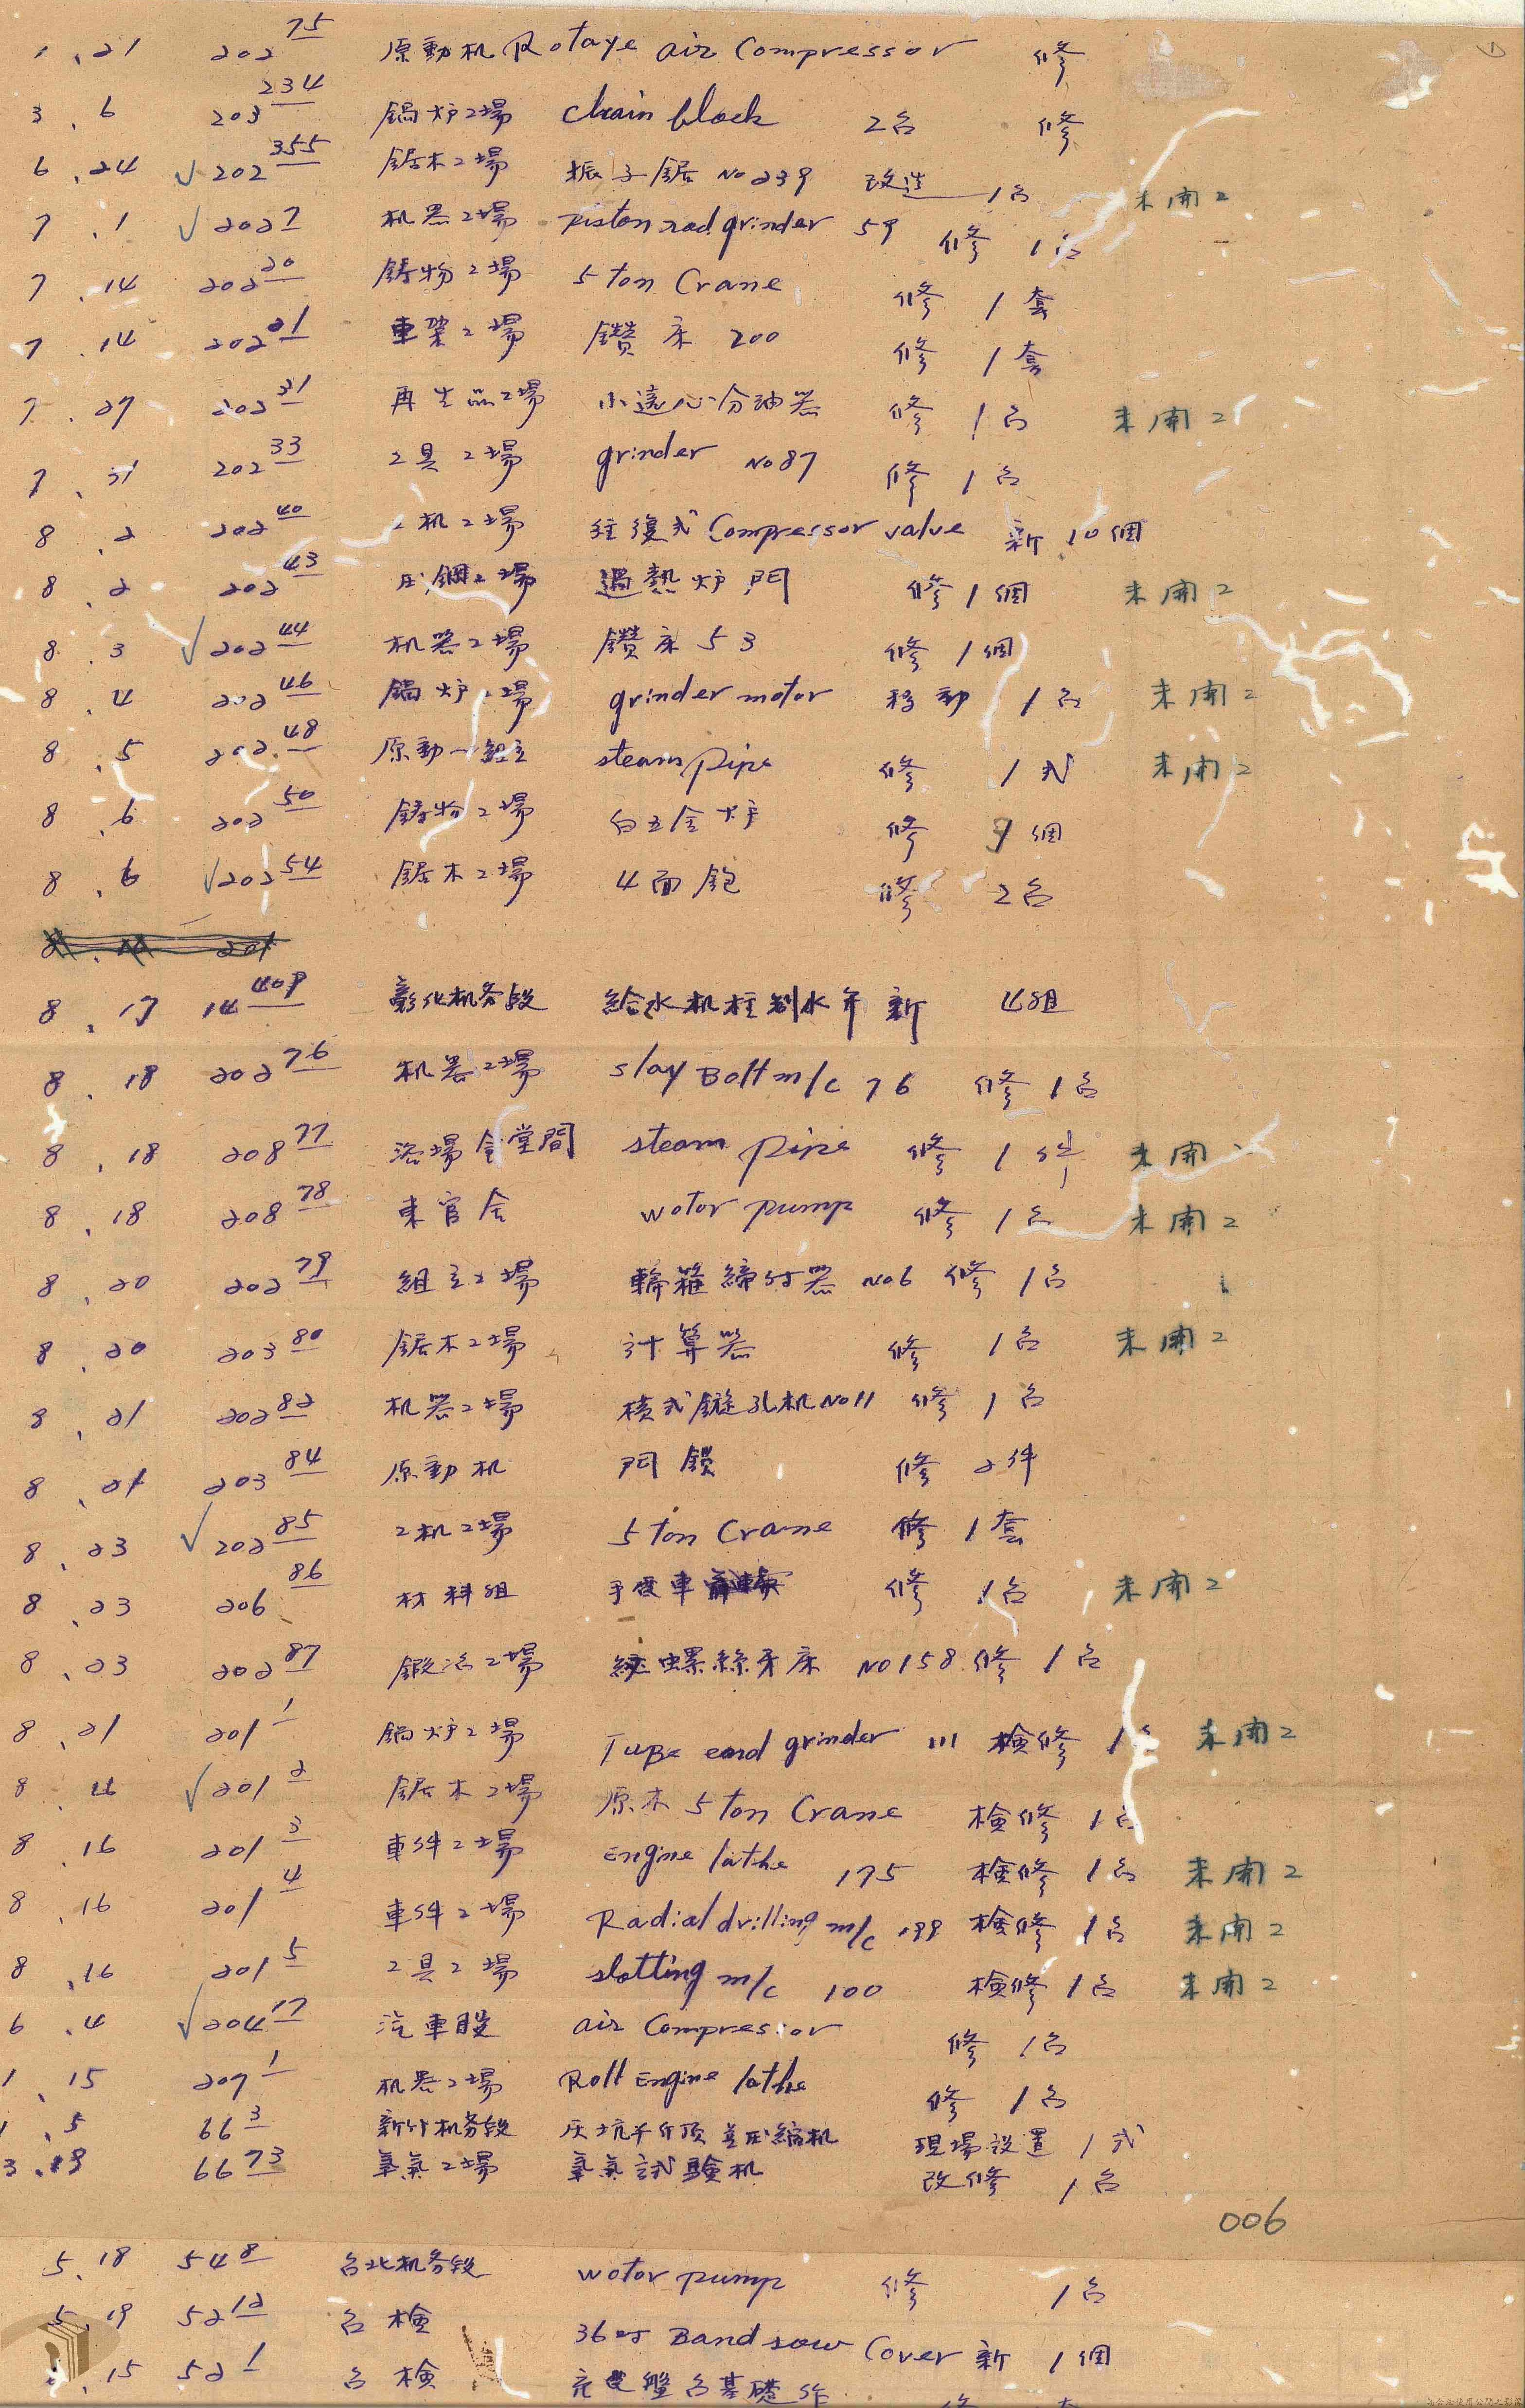 1.21 202 75 原動机 Rotaye air compressor 修
3.6 203 234 鍋炉工場 chain block 2台 修
6.24 ✓202 355 鋸木工場 振子鋸 No239 改造 1台 未開工
7.1 ✓202 7 机器工場 piston rod grinder 59 修 1台
7.14 202 20 鋳物工場 5 ton Crane 修 1套
7.14 202 21 車架工場 鑽床 200 修 1套
7.27 202 31 再生品工場 小遠心分油器 修 1台 未開工
7.31 202 33 工具工場 grinder No87 修 1台
8.2 202 40 工机工場 往復式 Compressor valve 新 10個
8.2 202 43 圧鋼工場 過熱炉門 修 1個 未開工
8.3 ✓202 44 机器工場 鑽床 53 修 1個
8.4 202 46 鍋炉工場 grinder motor 移動 1台 未開工
8.5 202 48 原動-組立 steam pipe 修 1式 未開工
8.6 202 50 鋳物工場 白五金炉 修 個
8.6 ✓202 54 鋸木工場 4面鉋 修 2台
8.17 14 409 彰化机务段 給水机柱制水弁 新 4組
8.18 202 76 机器工場 slay Bolt m/c 76 修 1台
8.18 208 77 浴場食堂間 steam pipe 修 1件 未開
8.18 208 78 東官舍 wotor pump 修 1台 未開工
8.20 202 79 組立工場 輪箍締付器 No6 修 1台
8.20 203 80 鋸木工場 計算器 修 1台 未開工
8.21 202 82 机器工場 横式鏇孔机 No11 修 1台
8.21 203 84 原動机 門鎖 修 2件
8.23 ✓202 85 工机工場 5 ton Crane 修 1套
8.23 206 86 材料組 手 車 修 1台 未開工
8.23 202 87 鍛冶工場 螺絲牙床 No158 修 1台
8.21 201 1 鍋炉工場 Tube end grinder 111 検修 1台 未開工
8.16 ✓201 2 鋸木工場 原木 5 ton Crane 検修 1台
8.16 201 3 車件工場 Engine lathe 175 検修 1台 未開工
8.16 201 4 車件工場 Radial drilling m/c 199 検修 1台 未開工
8.16 201 5 工具工場 slotting m/c 100 検修 1台 未開工
6.4 ✓204 17 汽車股 air Compressor 修 1台
1.15 207 1 机器工場 Roll Engine lathe 修 1台
1.5 66 3 新竹机务段 灰坑千斤頂並圧縮机 現場設置 1式
3.19 66 73 氧氣工場 氧氣試験机 改修 1台
006
5.18 54 8 台北机务段 wotor pump 修 1台
5.19 52 12 台検 36吋 Band sow Cover 新 1個
.15 52 1 台検 盤台基礎